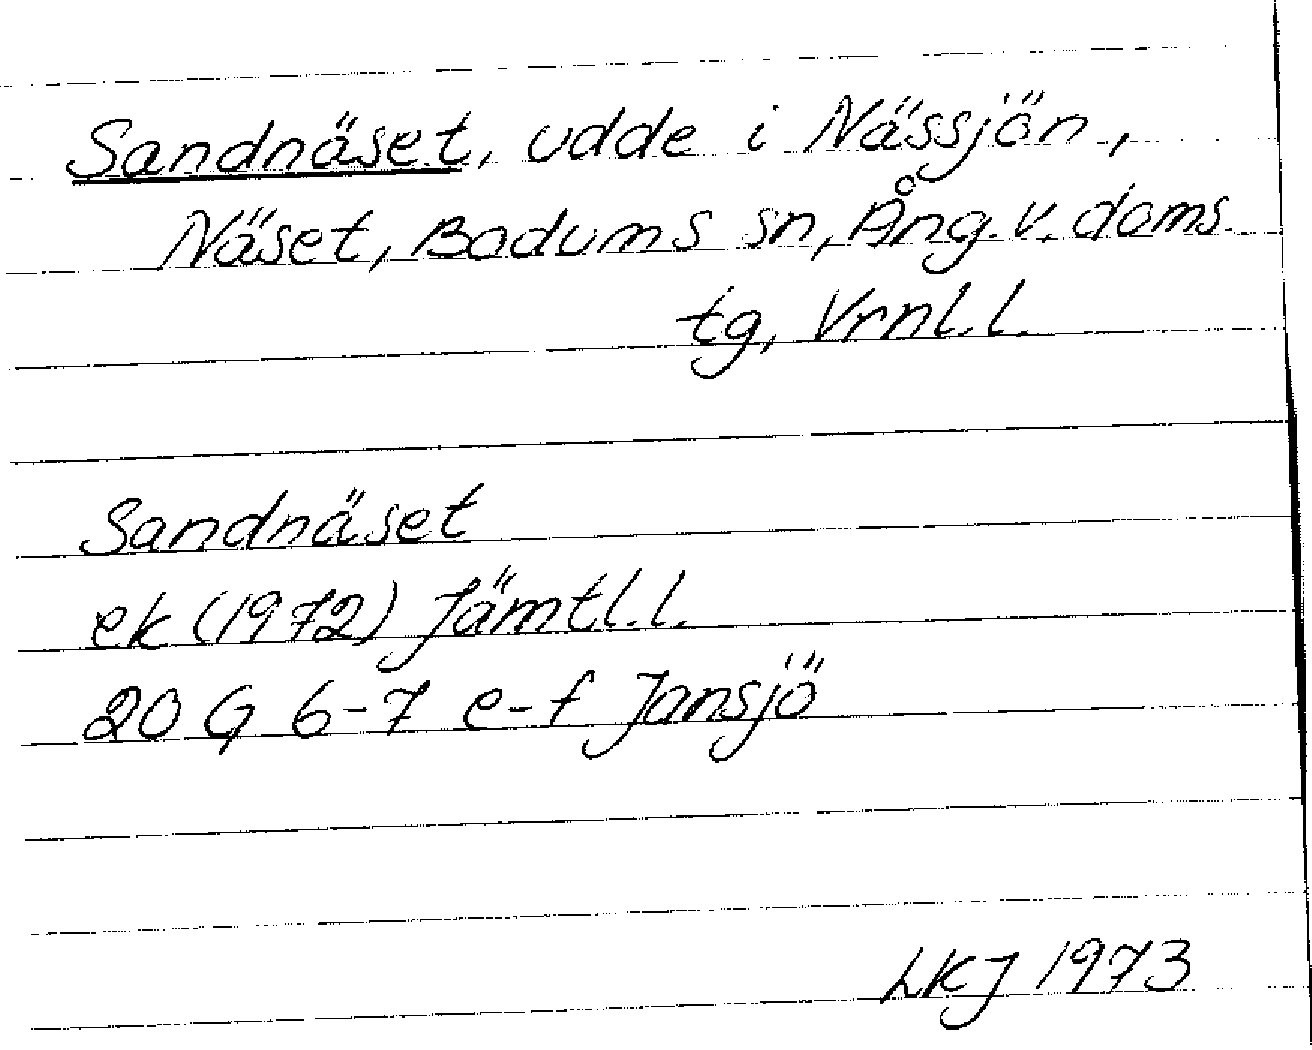 Sandnäset, udde i Nässjön,
Näset, Bodums sn, Ång. v. doms
tg, Vrnl. l.
Sandnäset
ek (1972) Jämtl. l.
20 G 6-7 e-f Jansjö
LKJ 1973